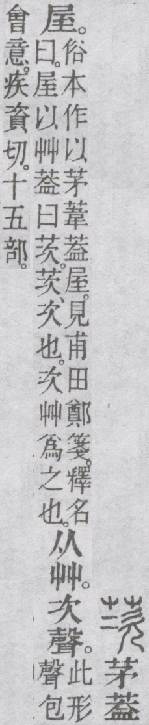 茨 茅葢
屋。俗本作以茅葦葢屋。見甫田鄭箋。釋名
曰。屋以艸葢曰茨。茨、次也。次艸爲之也。从艸。次聲。此形
聲包
會意。疾資切。十五部。